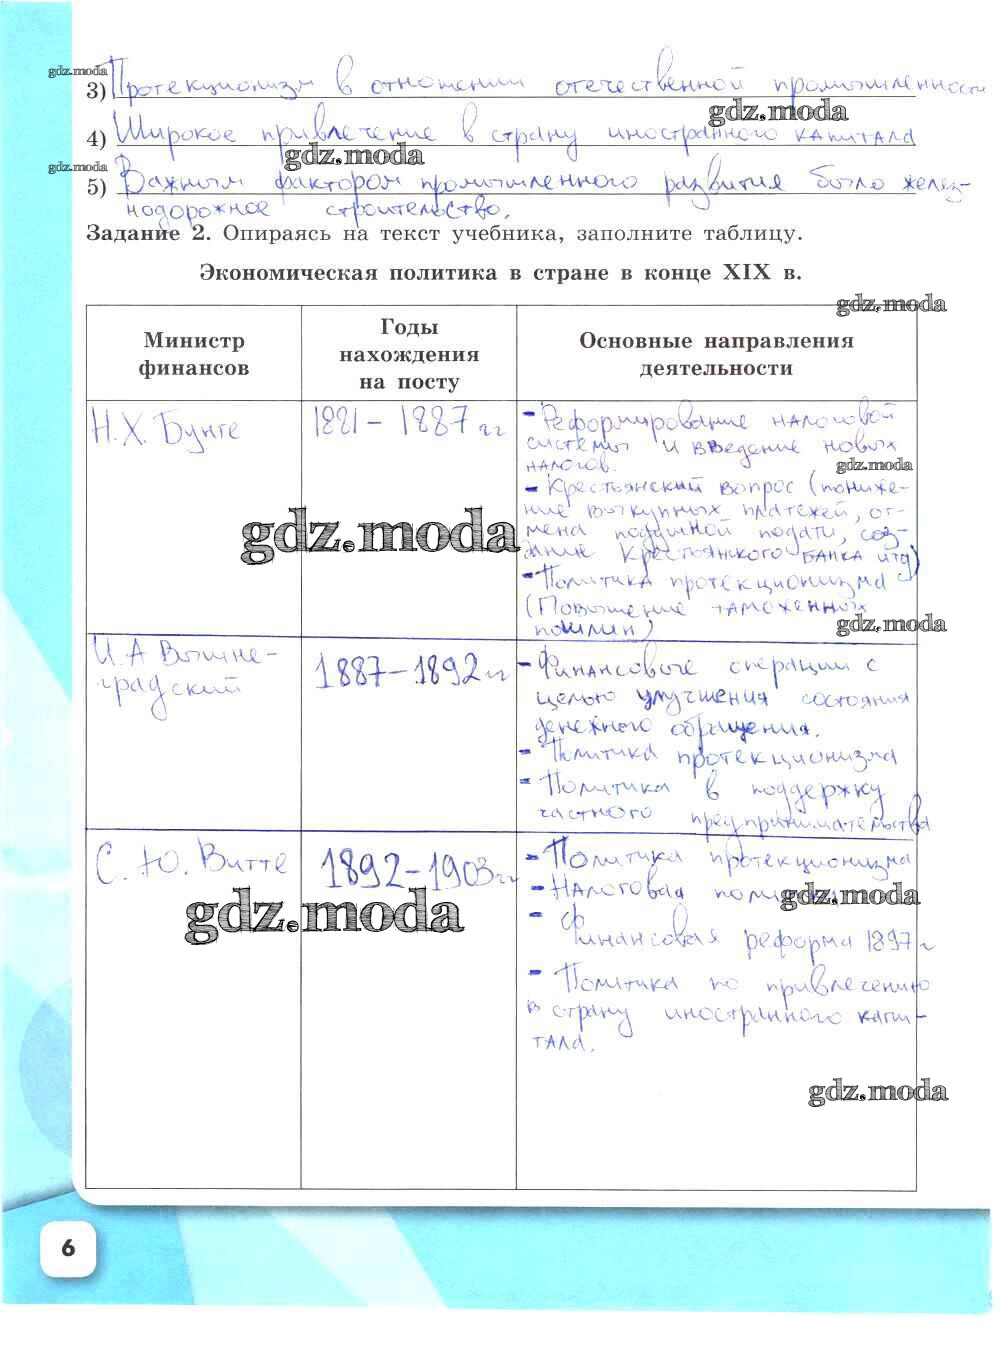 gdz.moda
3) Протекционизм в отношении отечественной промышленности
gdz.moda
4) Широкое привлечение в страну иностранного капитала
gdz.moda
gdz.moda
5) Важным фактором промышленного развития было желез-
нодорожное строительство.
Задание 2. Опираясь на текст учебника, заполните таблицу.
Экономическая политика в стране в конце XIX в.
gdz.moda
Министр
финансов
Годы
нахождения
на посту
Основные направления
деятельности
Н.Х. Бунге
1881 – 1887 гг
- Реформирование налоговой
системы и введение новых
налогов.
gdz.moda
- Крестьянский вопрос (пониже-
ние выкупных платежей, от-
мена подушной подати, соз-
дание Крестьянского банка итд)
gdz.moda
- Политика протекционизма
(Повышение таможенных
пошлин)
gdz.moda
И.А Вышне-
градский
1887–1892 гг
- Финансовые операции с
целью улучшения состояния
денежного обращения.
- Политика протекционизма
- Политика в поддержку
частного предпринимательства
С. Ю. Витте
1892–1903 гг
- Политика протекционизма
- Налоговая
gdz.moda
gdz.moda
- Финансовая реформа 1897 г
- Политика по привлечению
в страну иностранного капи-
тала.
gdz.moda
6